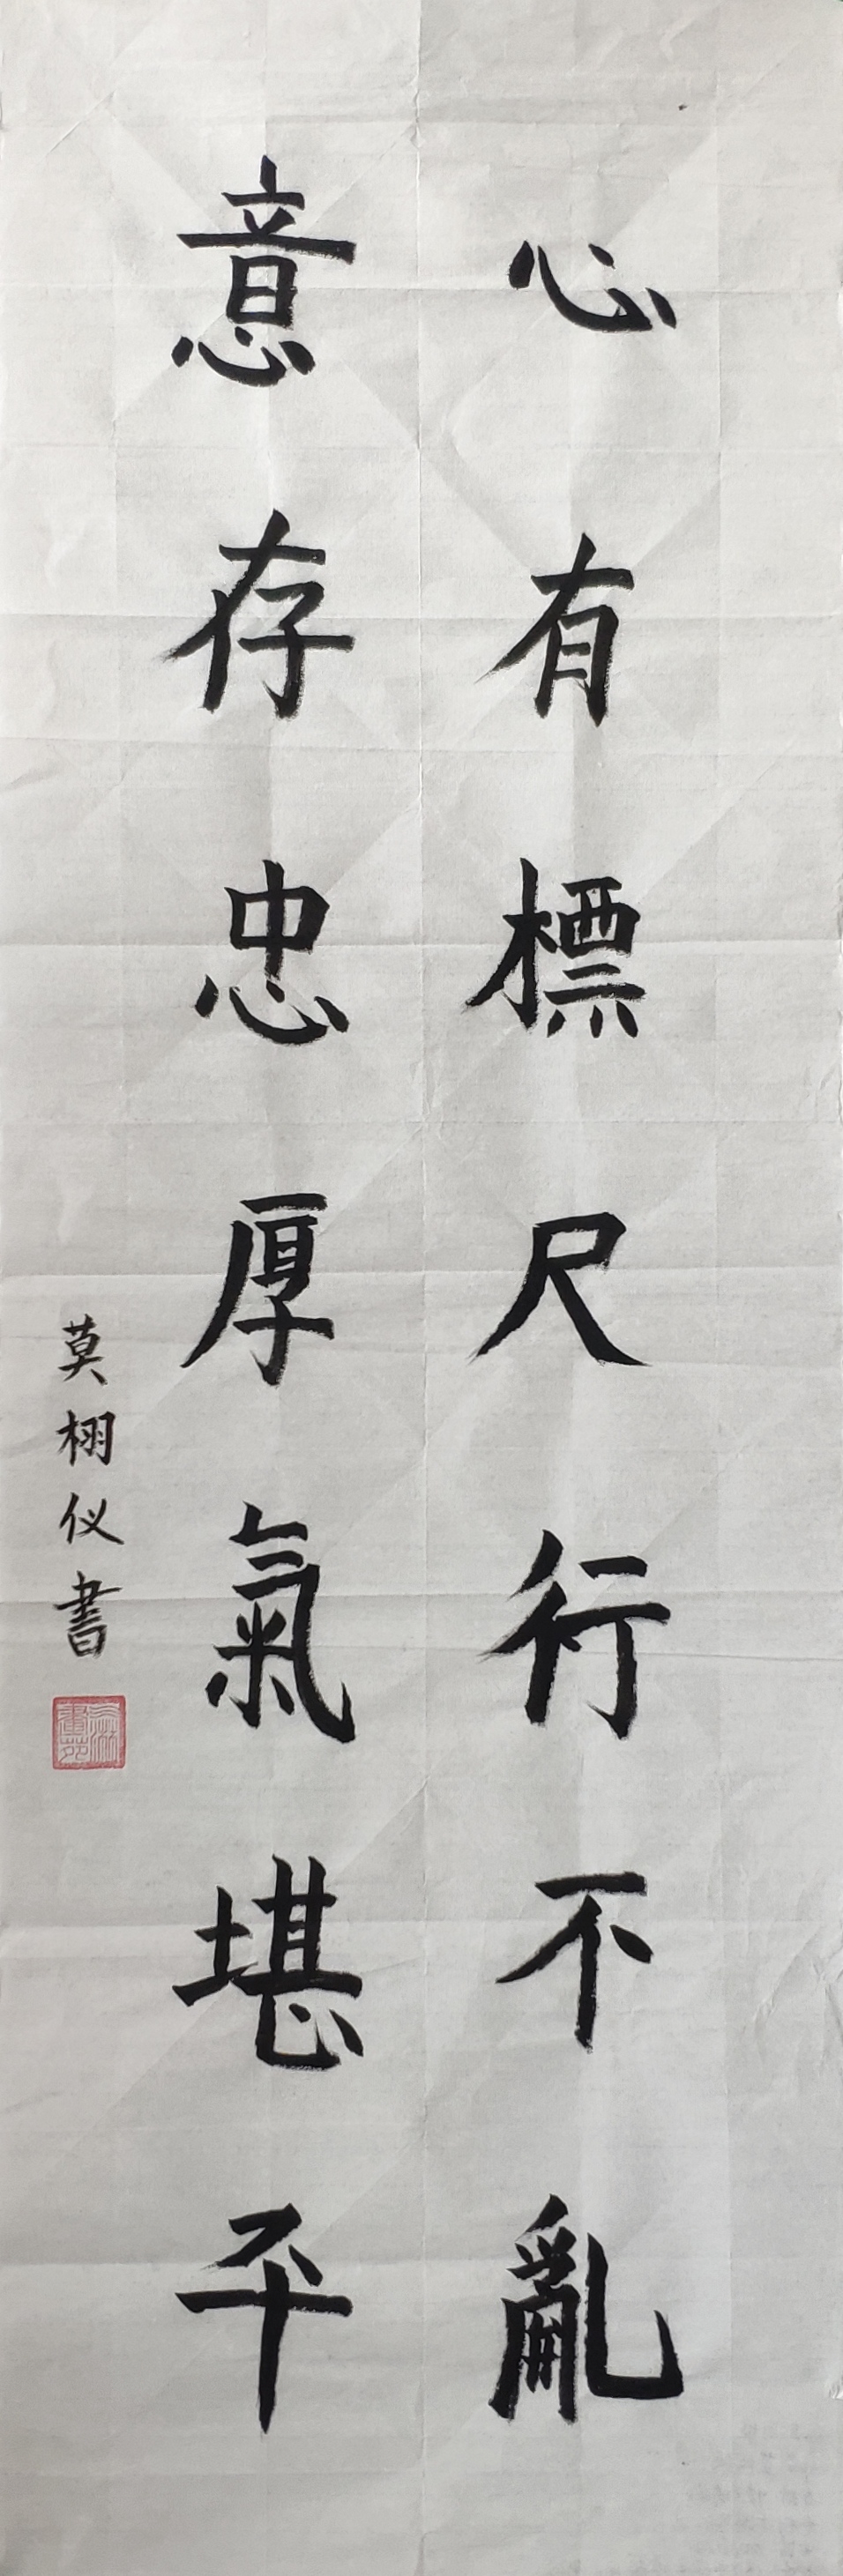 心有標尺行不亂
意存忠厚氣堪平
莫栩仪書